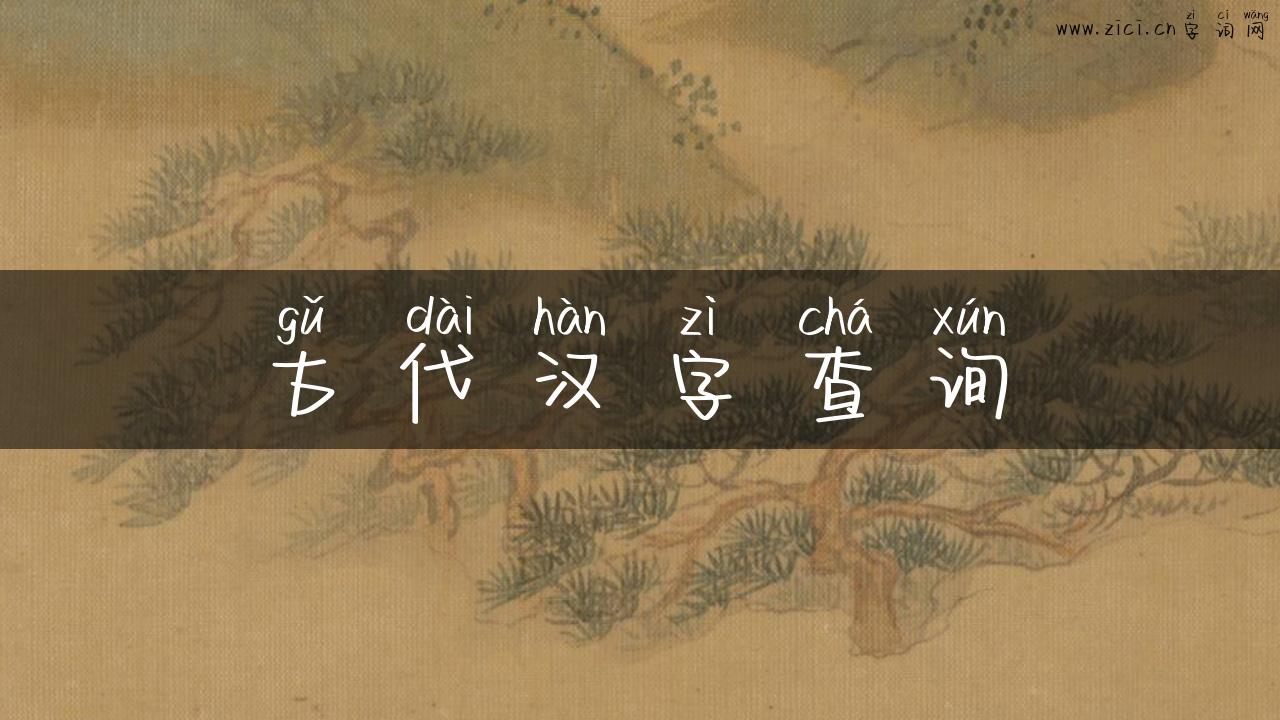 zì cí wǎng
www.zici.cn 字词网
gǔ dài hàn zì chá xún
古代汉字查询